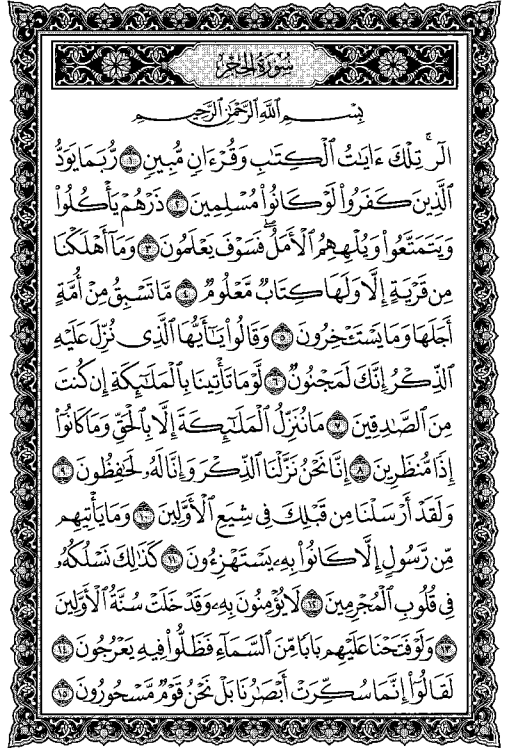 سُورَةُ الحِجْرِ
بِسْمِ اللَّهِ الرَّحْمَٰنِ الرَّحِيمِ
الٓرۚ تِلْكَ ءَايَٰتُ ٱلْكِتَٰبِ وَقُرْءَانٍ مُّبِينٍ ١ رُّبَمَا يَوَدُّ
ٱلَّذِينَ كَفَرُوا۟ لَوْ كَانُوا۟ مُسْلِمِينَ ٢ ذَرْهُمْ يَأْكُلُوا۟
وَيَتَمَتَّعُوا۟ وَيُلْهِهِمُ ٱلْأَمَلُۖ فَسَوْفَ يَعْلَمُونَ ٣ وَمَآ أَهْلَكْنَا
مِن قَرْيَةٍ إِلَّا وَلَهَا كِتَابٌ مَّعْلُومٌ ٤ مَّا تَسْبِقُ مِنْ أُمَّةٍ
أَجَلَهَا وَمَا يَسْتَـْٔخِرُونَ ٥ وَقَالُوا۟ يَٰٓأَيُّهَا ٱلَّذِى نُزِّلَ عَلَيْهِ
ٱلذِّكْرُ إِنَّكَ لَمَجْنُونٌ ٦ لَّوْ مَا تَأْتِينَا بِٱلْمَلَٰٓئِكَةِ إِن كُنتَ
مِنَ ٱلصَّٰدِقِينَ ٧ مَا نُنَزِّلُ ٱلْمَلَٰٓئِكَةَ إِلَّا بِٱلْحَقِّ وَمَا كَانُوٓا۟
إِذًا مُّنظَرِينَ ٨ إِنَّا نَحْنُ نَزَّلْنَا ٱلذِّكْرَ وَإِنَّا لَهُۥ لَحَٰفِظُونَ ٩
وَلَقَدْ أَرْسَلْنَا مِن قَبْلِكَ فِى شِيَعِ ٱلْأَوَّلِينَ ١٠ وَمَا يَأْتِيهِم
مِّن رَّسُولٍ إِلَّا كَانُوا۟ بِهِۦ يَسْتَهْزِءُونَ ١١ كَذَٰلِكَ نَسْلُكُهُۥ
فِى قُلُوبِ ٱلْمُجْرِمِينَ ١٢ لَا يُؤْمِنُونَ بِهِۦ وَقَدْ خَلَتْ سُنَّةُ ٱلْأَوَّلِينَ
١٣ وَلَوْ فَتَحْنَا عَلَيْهِم بَابًا مِّنَ ٱلسَّمَآءِ فَظَلُّوا۟ فِيهِ يَعْرُجُونَ ١٤
لَقَالُوٓا۟ إِنَّمَا سُكِّرَتْ أَبْصَٰرُنَا بَلْ نَحْنُ قَوْمٌ مَّسْحُورُونَ ١٥